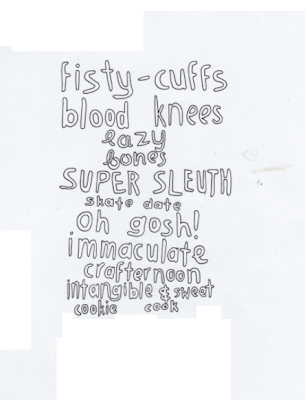 fisty-cuffs
blood knees
lazy
bones
SUPER SLEUTH
skate date
oh gosh!
immaculate
crafternoon
intangible & sweet
cookie cook